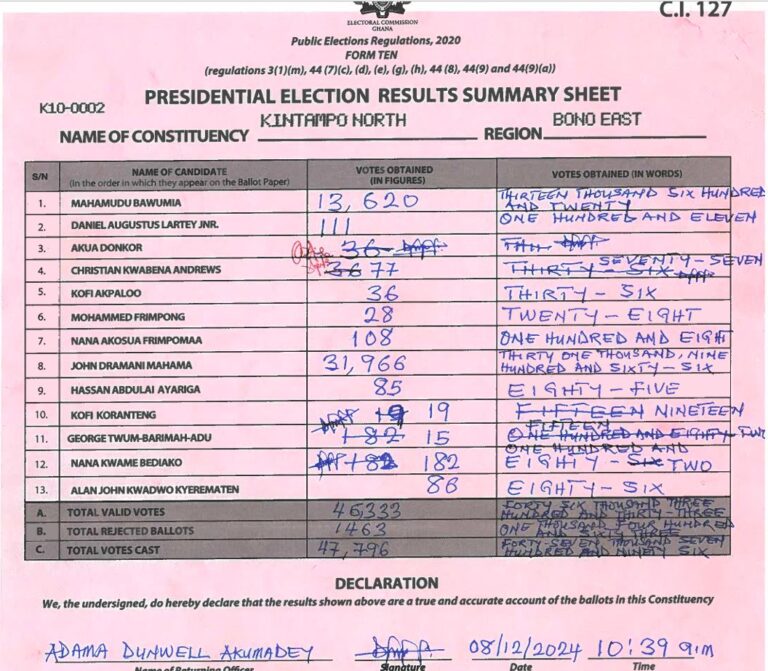 C.I. 127
ELECTORAL COMMISSION
GHANA
Public Elections Regulations, 2020
FORM TEN
(regulations 3(1)(m), 44 (7)(c), (d), (e), (g), (h), 44 (8), 44(9) and 44(9)(a))
K10-0002
PRESIDENTIAL ELECTION RESULTS SUMMARY SHEET
NAME OF CONSTITUENCY KINTAMPO NORTH REGION BONO EAST
S/N NAME OF CANDIDATE (In the order in which they appear on the Ballot Paper) VOTES OBTAINED (IN FIGURES) VOTES OBTAINED (IN WORDS)
1. MAHAMUDU BAWUMIA 13,620 THIRTEEN THOUSAND SIX HUNDRED AND TWENTY
2. DANIEL AUGUSTUS LARTEY JNR. 111 ONE HUNDRED AND ELEVEN
3. AKUA DONKOR 36
4. CHRISTIAN KWABENA ANDREWS 36 77 THIRTY-SIX SEVENTY-SEVEN
5. KOFI AKPALOO 36 THIRTY-SIX
6. MOHAMMED FRIMPONG 28 TWENTY-EIGHT
7. NANA AKOSUA FRIMPOMAA 108 ONE HUNDRED AND EIGHT
8. JOHN DRAMANI MAHAMA 31,966 THIRTY ONE THOUSAND, NINE HUNDRED AND SIXTY-SIX
9. HASSAN ABDULAI AYARIGA 85 EIGHTY-FIVE
10. KOFI KORANTENG 19 FIFTEEN NINETEEN
11. GEORGE TWUM-BARIMAH-ADU 182 15 ONE HUNDRED AND EIGHTY-TWO FIFTEEN
12. NANA KWAME BEDIAKO 182 ONE HUNDRED AND EIGHTY-SIX TWO
13. ALAN JOHN KWADWO KYEREMATEN 86 EIGHTY-SIX
A. TOTAL VALID VOTES 46333 FORTY SIX THOUSAND THREE HUNDRED AND THIRTY-THREE
B. TOTAL REJECTED BALLOTS 1463 ONE THOUSAND FOUR HUNDRED AND SIXTY THREE
C. TOTAL VOTES CAST 47,796 FORTY-SEVEN THOUSAND SEVEN HUNDRED AND NINETY SIX
DECLARATION
We, the undersigned, do hereby declare that the results shown above are a true and accurate account of the ballots in this Constituency
ADAMA DUNWELL AKUMADEY 08/12/2024 10:39 am
Name of Returning Officer Signature Date Time